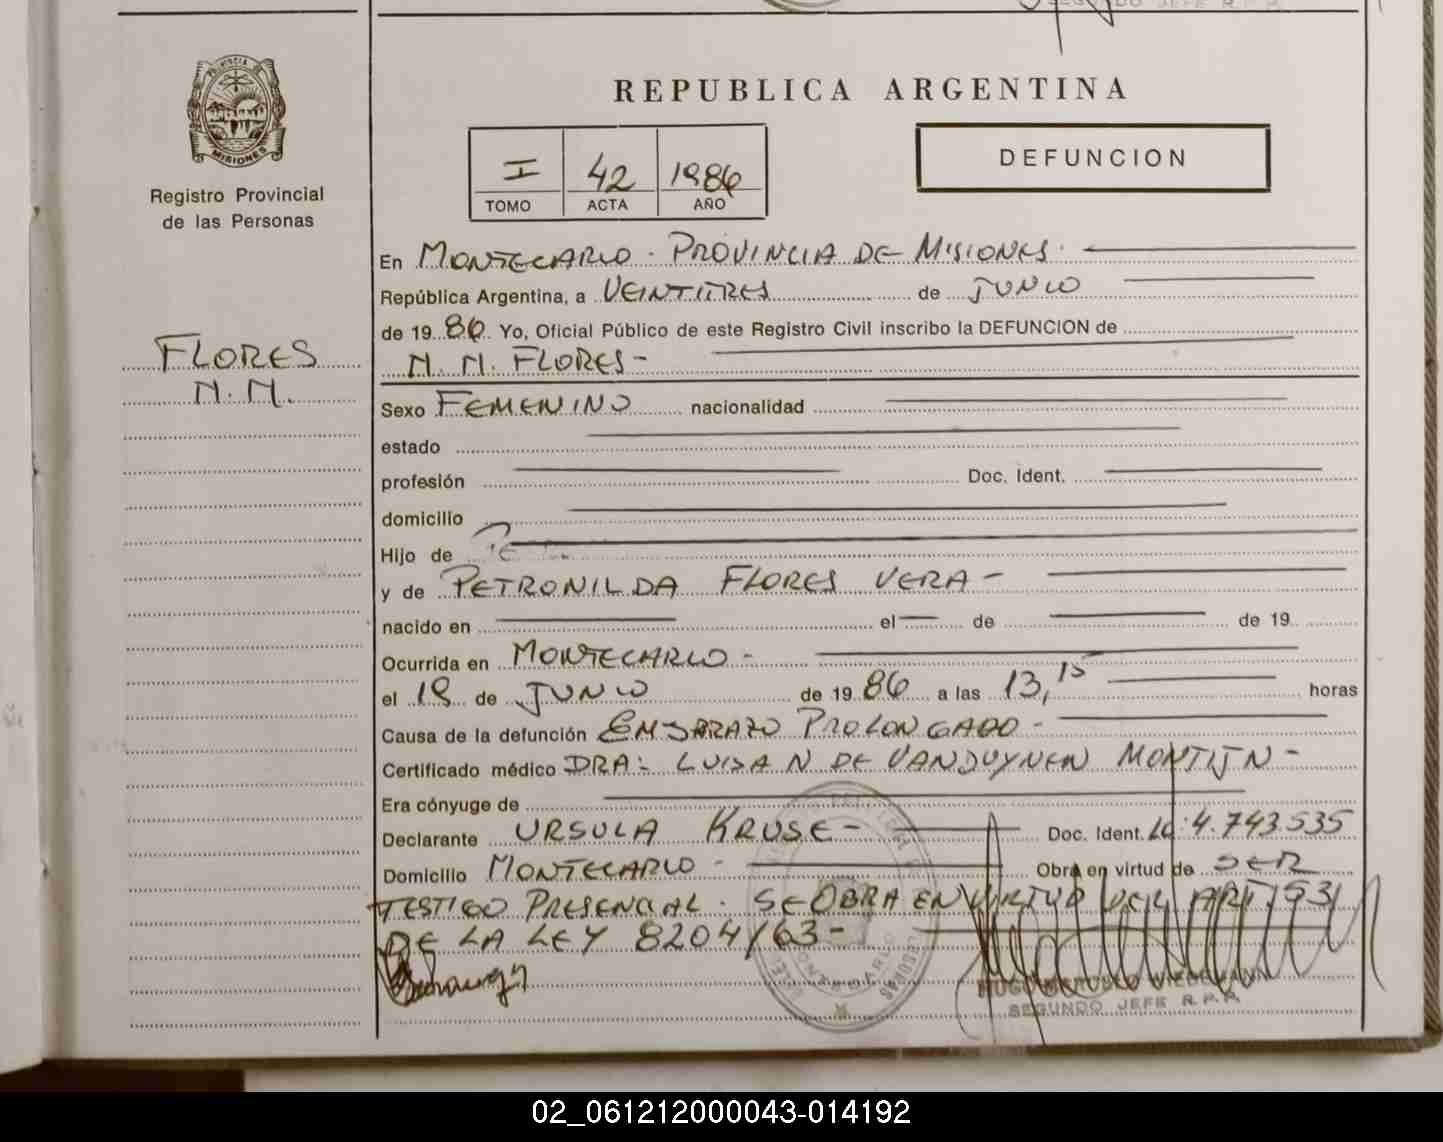 PROVINCIA DE
MISIONES
Registro Provincial
de las Personas
FLORES
N.N.
SEGUNDO JEFE R.P.P.
REPUBLICA ARGENTINA
I 42 1986
TOMO ACTA AÑO
DEFUNCION
En MONTECARLO. PROVINCIA DE MISIONES.
República Argentina, a VEINTITRES de JUNIO
de 19 86 Yo, Oficial Público de este Registro Civil inscribo la DEFUNCION de
N.N. FLORES-
Sexo FEMENINO nacionalidad
estado
profesión Doc. Ident.
domicilio
Hijo de
y de PETRONILDA FLORES VERA-
nacido en el de de 19
Ocurrida en MONTECARLO-
el 18 de JUNIO de 1986 a las 13,15 horas
Causa de la defunción EMBARAZO PROLONGADO-
Certificado médico DRA: LUISA N DE VANDUYNEN MONTIJN-
Era cónyuge de
Declarante URSULA KRUSE- Doc. Ident. LC:4.743535
Domicilio MONTECARLO- Obra en virtud de SER
TESTIGO PRESENCIAL. SE OBRA EN VIRTUD DEL ART. 53
DE LA LEY 8204/63-
MONTECARLO
SEGUNDO JEFE R.P.P.
02_061212000043-014192